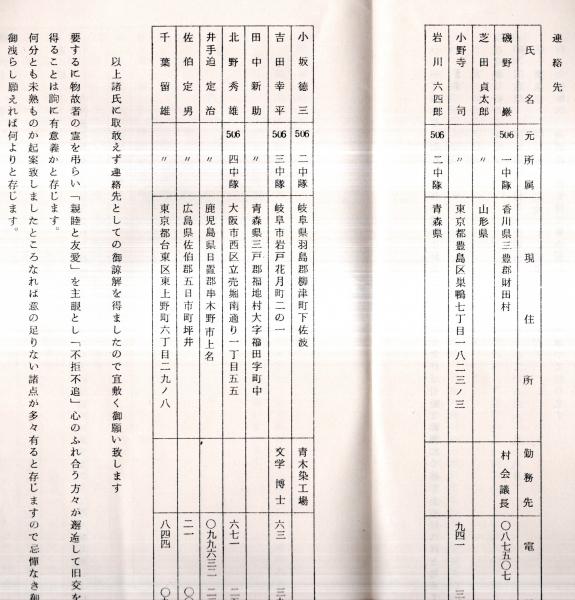 連絡先
氏名 元所属 現住所 勤務先 電
磯野巌 506 一中隊 香川県三豊郡財田村 村会議長 〇八七五〇七
芝田貞太郎 〃 山形県
小野寺司 〃 東京都豊島区巣鴨七丁目一八二三ノ三 九四一
岩川六四郎 506 二中隊 青森県
小坂徳三 506 二中隊 岐阜県羽島郡柳津町下佐波 青木染工場
吉田幸平 506 三中隊 岐阜市岩戸花月町二の一 文学博士 六三
田中新助 〃 青森県三戸郡福地村大字福田字町中
北野秀雄 506 四中隊 大阪市西区立売堀南通り一丁目五五 六七一
井手迫定治 〃 鹿児島県日置郡串木野市上名 〇九九六三二
佐伯定男 〃 広島県佐伯郡五日市町坪井 二一
千葉留雄 〃 東京都台東区東上野町六丁目二九ノ八 八四四
以上諸氏に取敢えず連絡先としての御諒解を得ましたので宜敷く御願い致します
要するに物故者の霊を弔らい「親睦と友愛」を主眼とし「不拒不追」心のふれ合う方々が邂逅して旧交を
得ることは洵に有意義かと存じます。
何分とも未熟ものが起案致しましたところなれば意の足りない諸点が多々有ると存じますので忌憚なき御
御洩らし願えれば何よりと存じます。